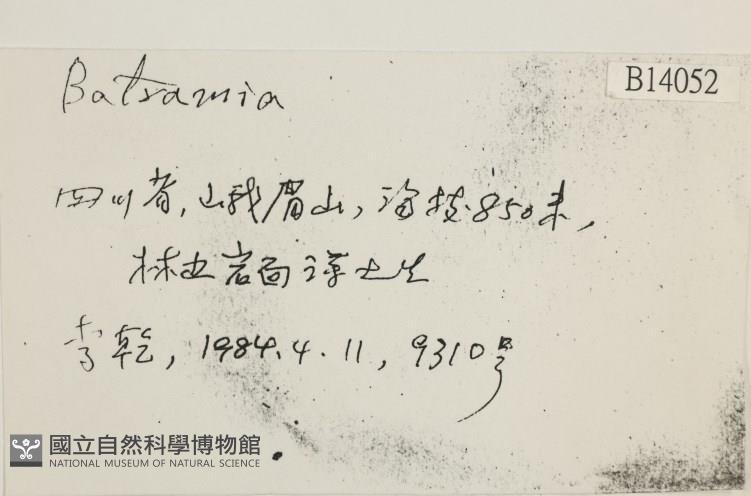 Batramia
B14052
四川省, 峨眉山, 海拔850米,
林边岩面薄土生
李乾, 1984.4.11, 9310号
國立自然科學博物館
NATIONAL MUSEUM OF NATURAL SCIENCE